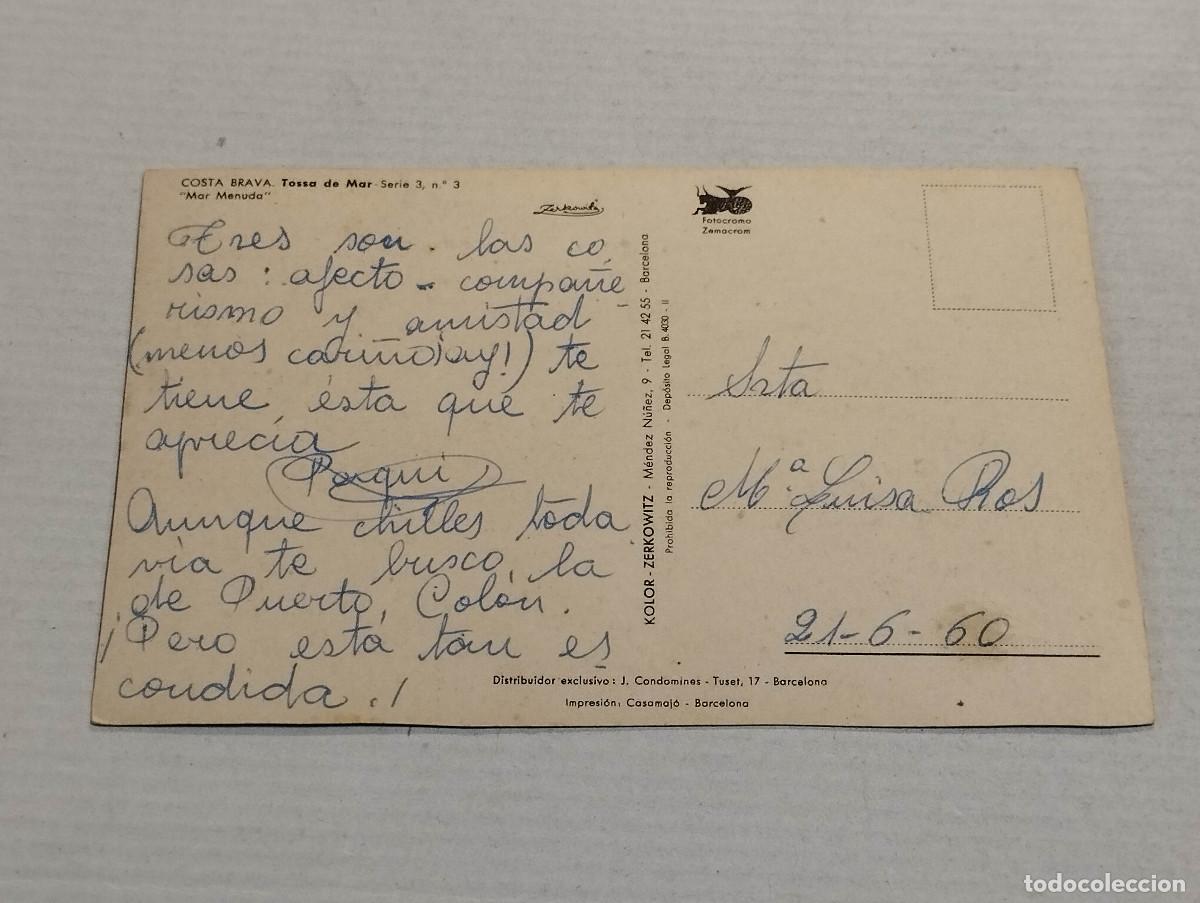 COSTA BRAVA. Tossa de Mar - Serie 3, n.° 3
"Mar Menuda"
Zerkowitz
Fotocromo
Zemacrom
Tres son las co
sas: afecto - compañe
rismo y amistad
(menos cariño ¡ay!) te
tiene ésta que te
aprecia
Paqui
Aunque chilles toda
vía te busco, la
de Puerto, Colón.
¡Pero está tan es
condida.!
KOLOR - ZERKOWITZ - Méndez Núñez, 9 - Tel. 21 42 55 - Barcelona
Prohibida la reproducción - Depósito Legal B. 4030 - II
Srta
Mª Luisa Ros
21-6-60
Distribuidor exclusivo: J. Condomines - Tuset, 17 - Barcelona
Impresión: Casamajó - Barcelona
todocoleccion